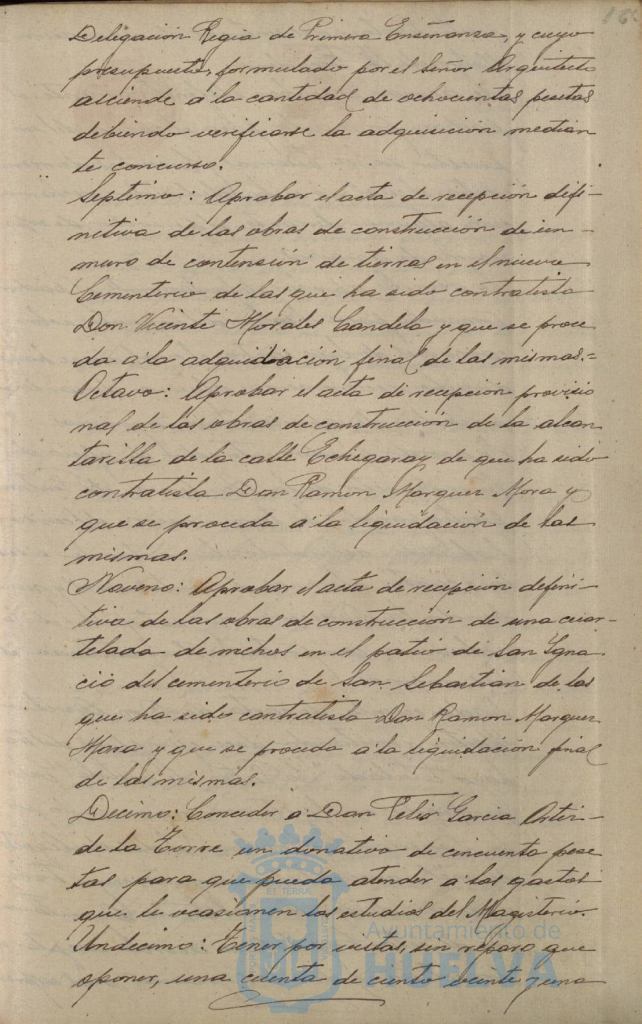 Delegación Regia de Primera Enseñanza, y cuyo
presupuesto, formulado por el Señor Arquitecto
asciende á la cantidad de ochocientas pesetas
debiendo verificarse la adquisición median
te concurso.
Septimo: Aprobar el acta de recepción defi-
nitiva de las obras de construcción de un
muro de contensión de tierras en el nuevo
Cementerio de las que ha sido contratista
Don Vicente Morales Candela y que se proce
da a la adquidiación final de las mismas.=
Octavo: Aprobar el acta de recepción provisio
nal de las obras de construcción de la alcan
tarilla de la calle Echegaray de que ha sido
contratista Don Ramon Marquez Mora y
que se proceda á la liquidación de las
mismas.
Noveno: Aprobar el acta de recepción defini-
tiva de las obras de construcción de una cuar-
telada de nichos en el patio de San Igna
cio del cementerio de San Sebastian de las
que ha sido contratista Don Ramon Marquez
Mora y que se proceda á la liquidación final
de las mismas.
Decimo: Conceder a Don Felix Garcia
de la Torre un donativo de cincuenta pese
tas para que pueda atender a los gastos
que le ocasionen los estudios del Magisterio.
Undecimo: Tener por vistas, sin reparo que
oponer, una cuenta de ciento veinte y una
Ayuntamiento de
HUELVA